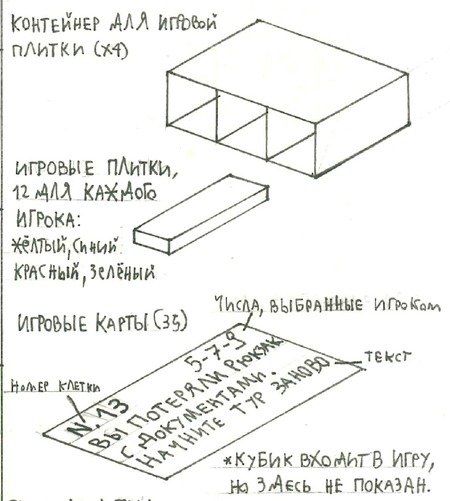 КОНТЕЙНЕР ДЛЯ ИГРОВОЙ
ПЛИТКИ (X4)
ИГРОВЫЕ ПЛИТКИ,
12 ДЛЯ КАЖДОГО
ИГРОКА:
ЖЁЛТЫЙ, СИНИЙ
КРАСНЫЙ, ЗЕЛЁНЫЙ
ИГРОВЫЕ КАРТЫ (35)
ЧИСЛА, ВЫБРАННЫЕ ИГРОКОМ
ТЕКСТ
НОМЕР КЛЕТКИ
№13
5-7-9
ВЫ ПОТЕРЯЛИ РЮКЗАК
С ДОКУМЕНТАМИ.
НАЧНИТЕ ТУР ЗАНОВО
*КУБИК ВХОДИТ В ИГРУ,
НО ЗДЕСЬ НЕ ПОКАЗАН.